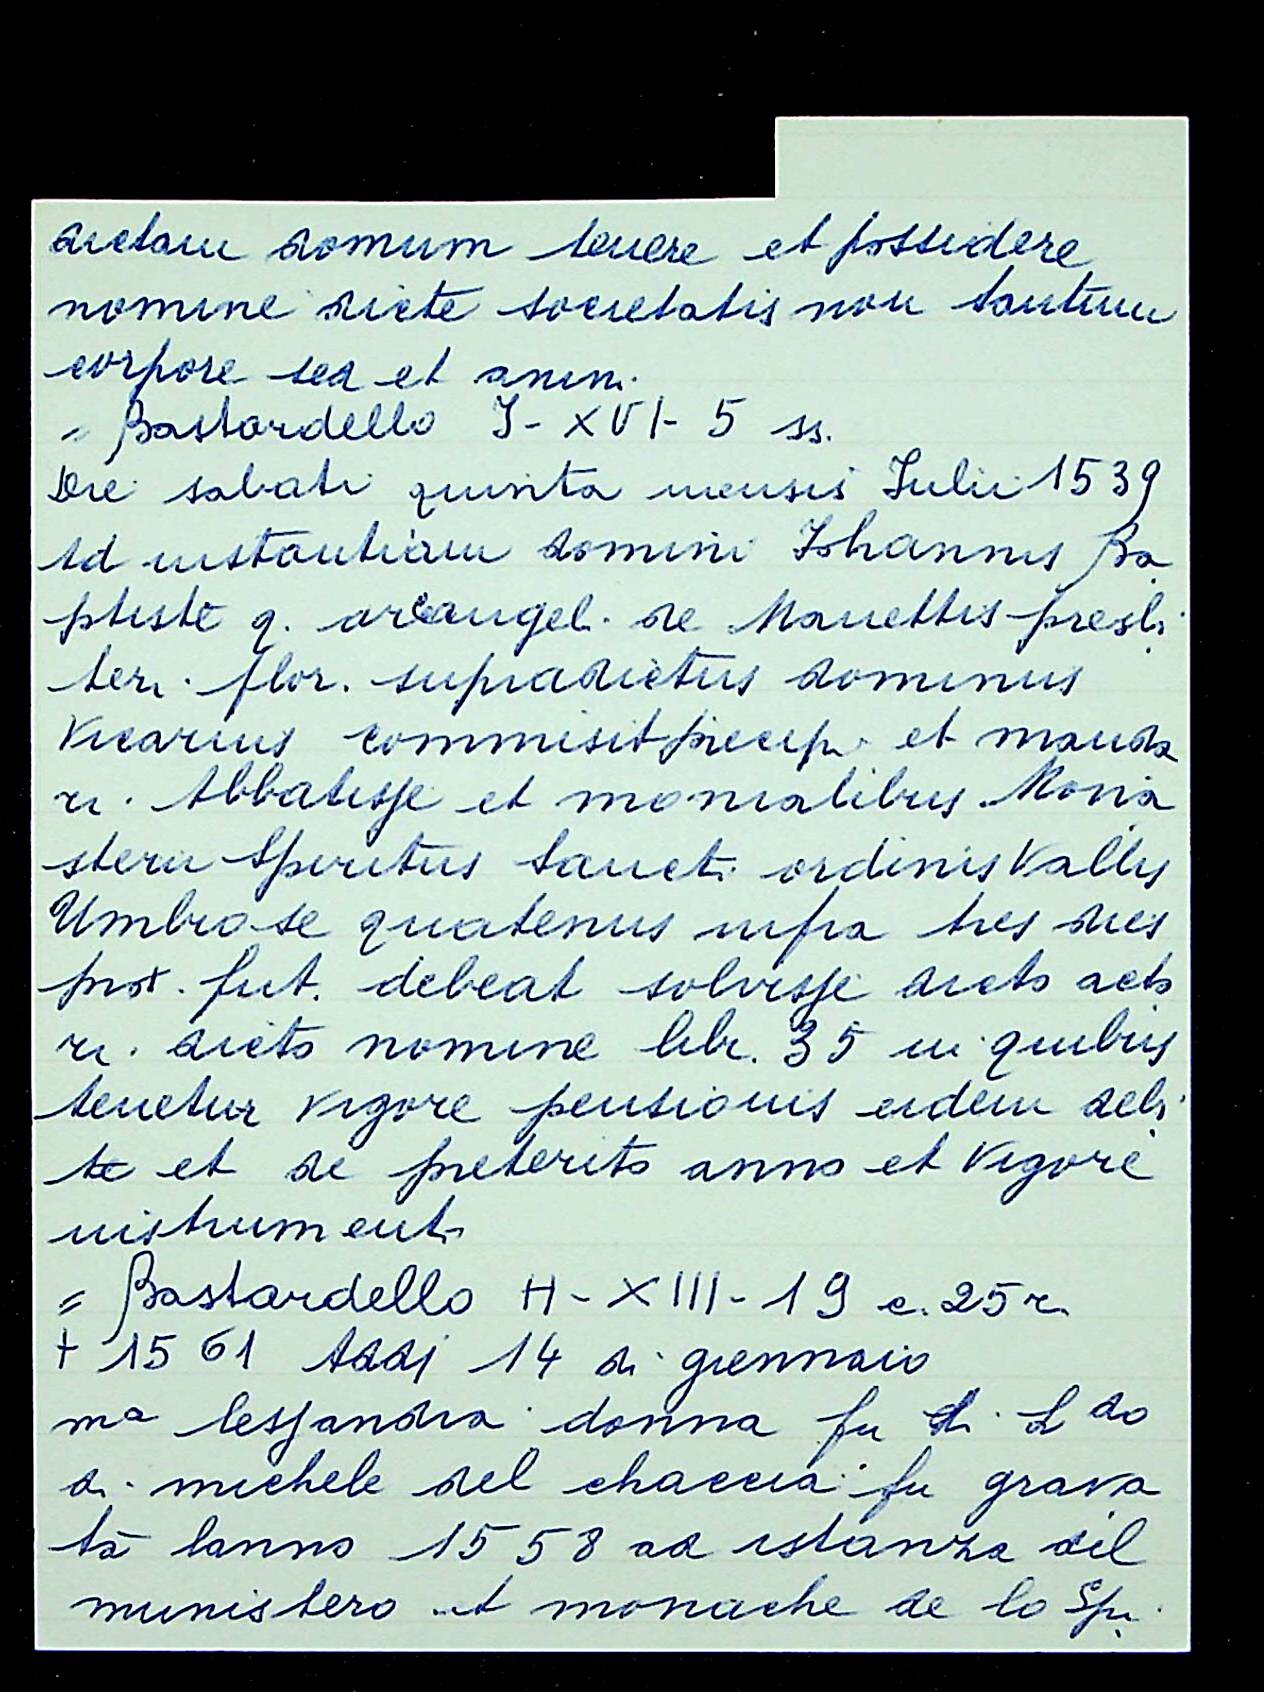 dictam domum tenere et possidere
nomine dicte societatis non tantum
corpore sed et anim.
= Bastardello I - XVI - 5 ss.
Die sabati quinta mensis Julii 1539
Ad instantiam domini Johannis Ba
ptiste q. arcangeli de Manettis presbi
teri flor. supradictus dominus
Vicarius commisit precipi et manda
ri Abbatisse et monialibus Mona
sterii Spiritus Sancti ordinis Vallis
Umbrose quatenus infra tres dies
prox. fut. debeat solvisse dicto acto
ri dicto nomine libr. 35 in quibus
tenetur vigore pensionis eidem debi
te et de preterito anno et vigore
instrumenti
= Bastardello H - XIII - 19 c. 25 r.
+ 1561 Addj 14 di giennaio
mª lessandra donna fu di L do
di michele del chaccia fu grava
ta lanno 1558 ad istanza del
munistero et monache de lo Spi